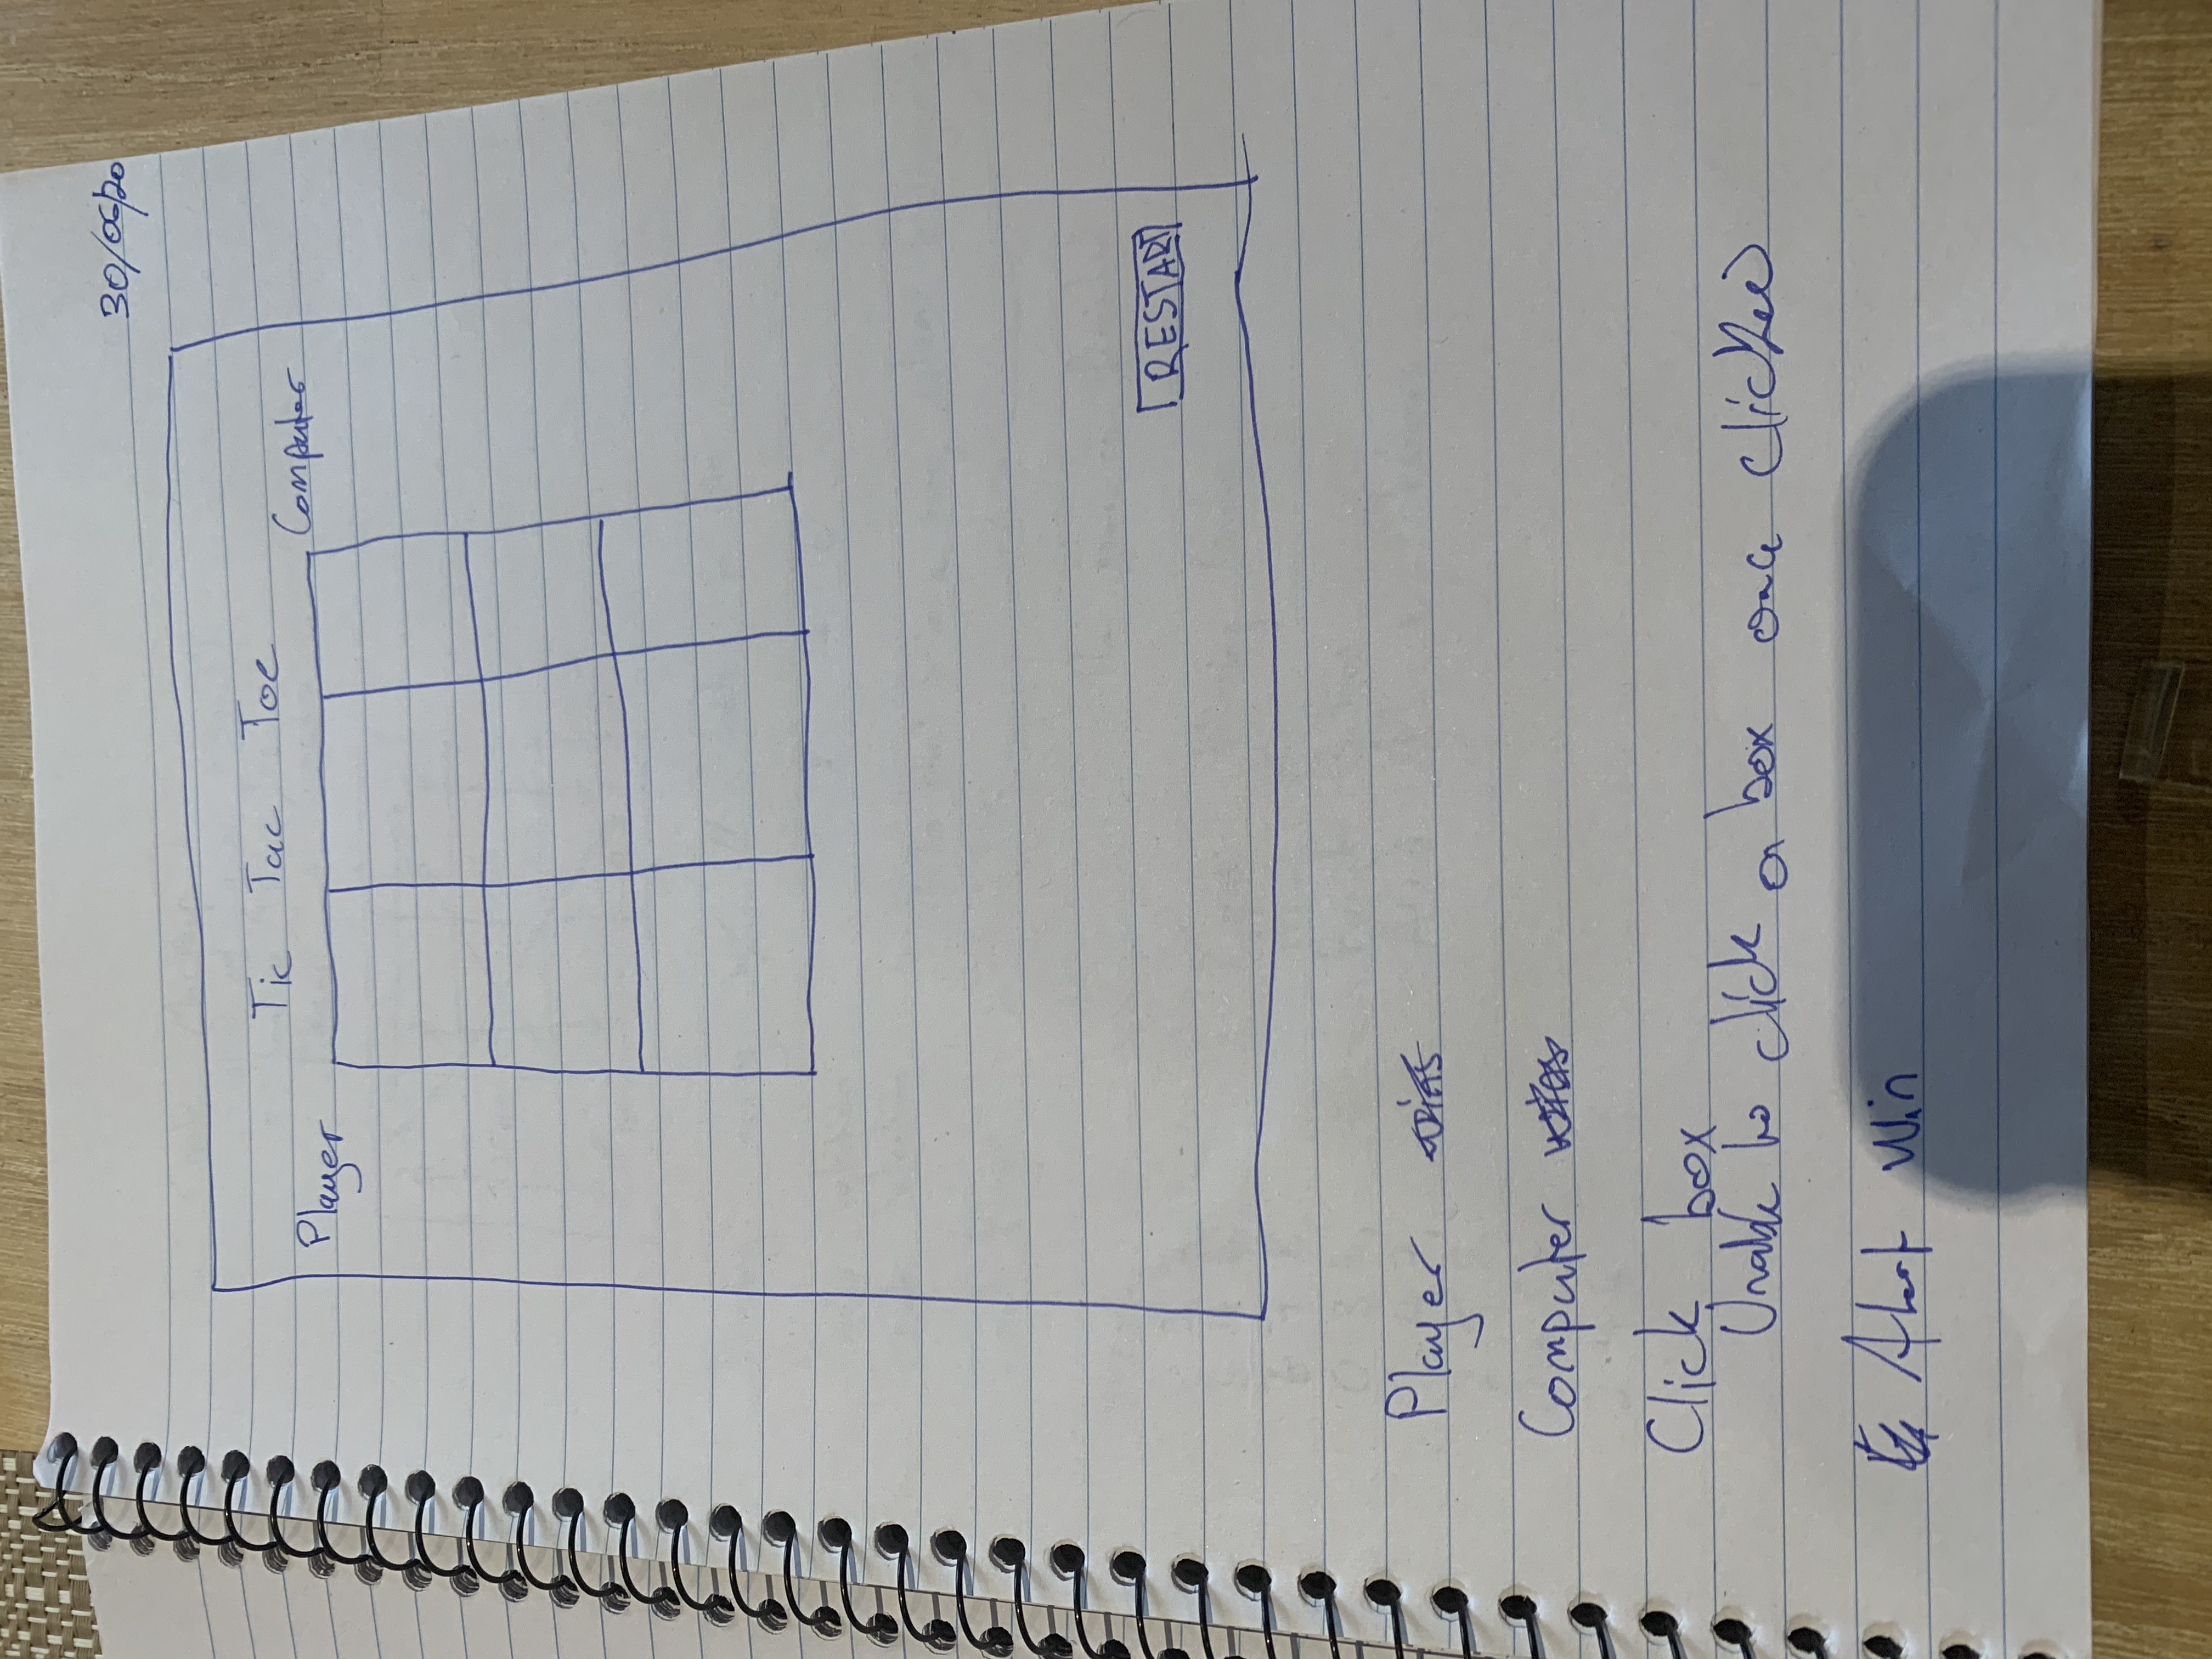 30/06/20
Tic Tac Toe
Player
Computer
RESTART
Player
Computer
Click box
Unable to click a box once clicked
Alert Win